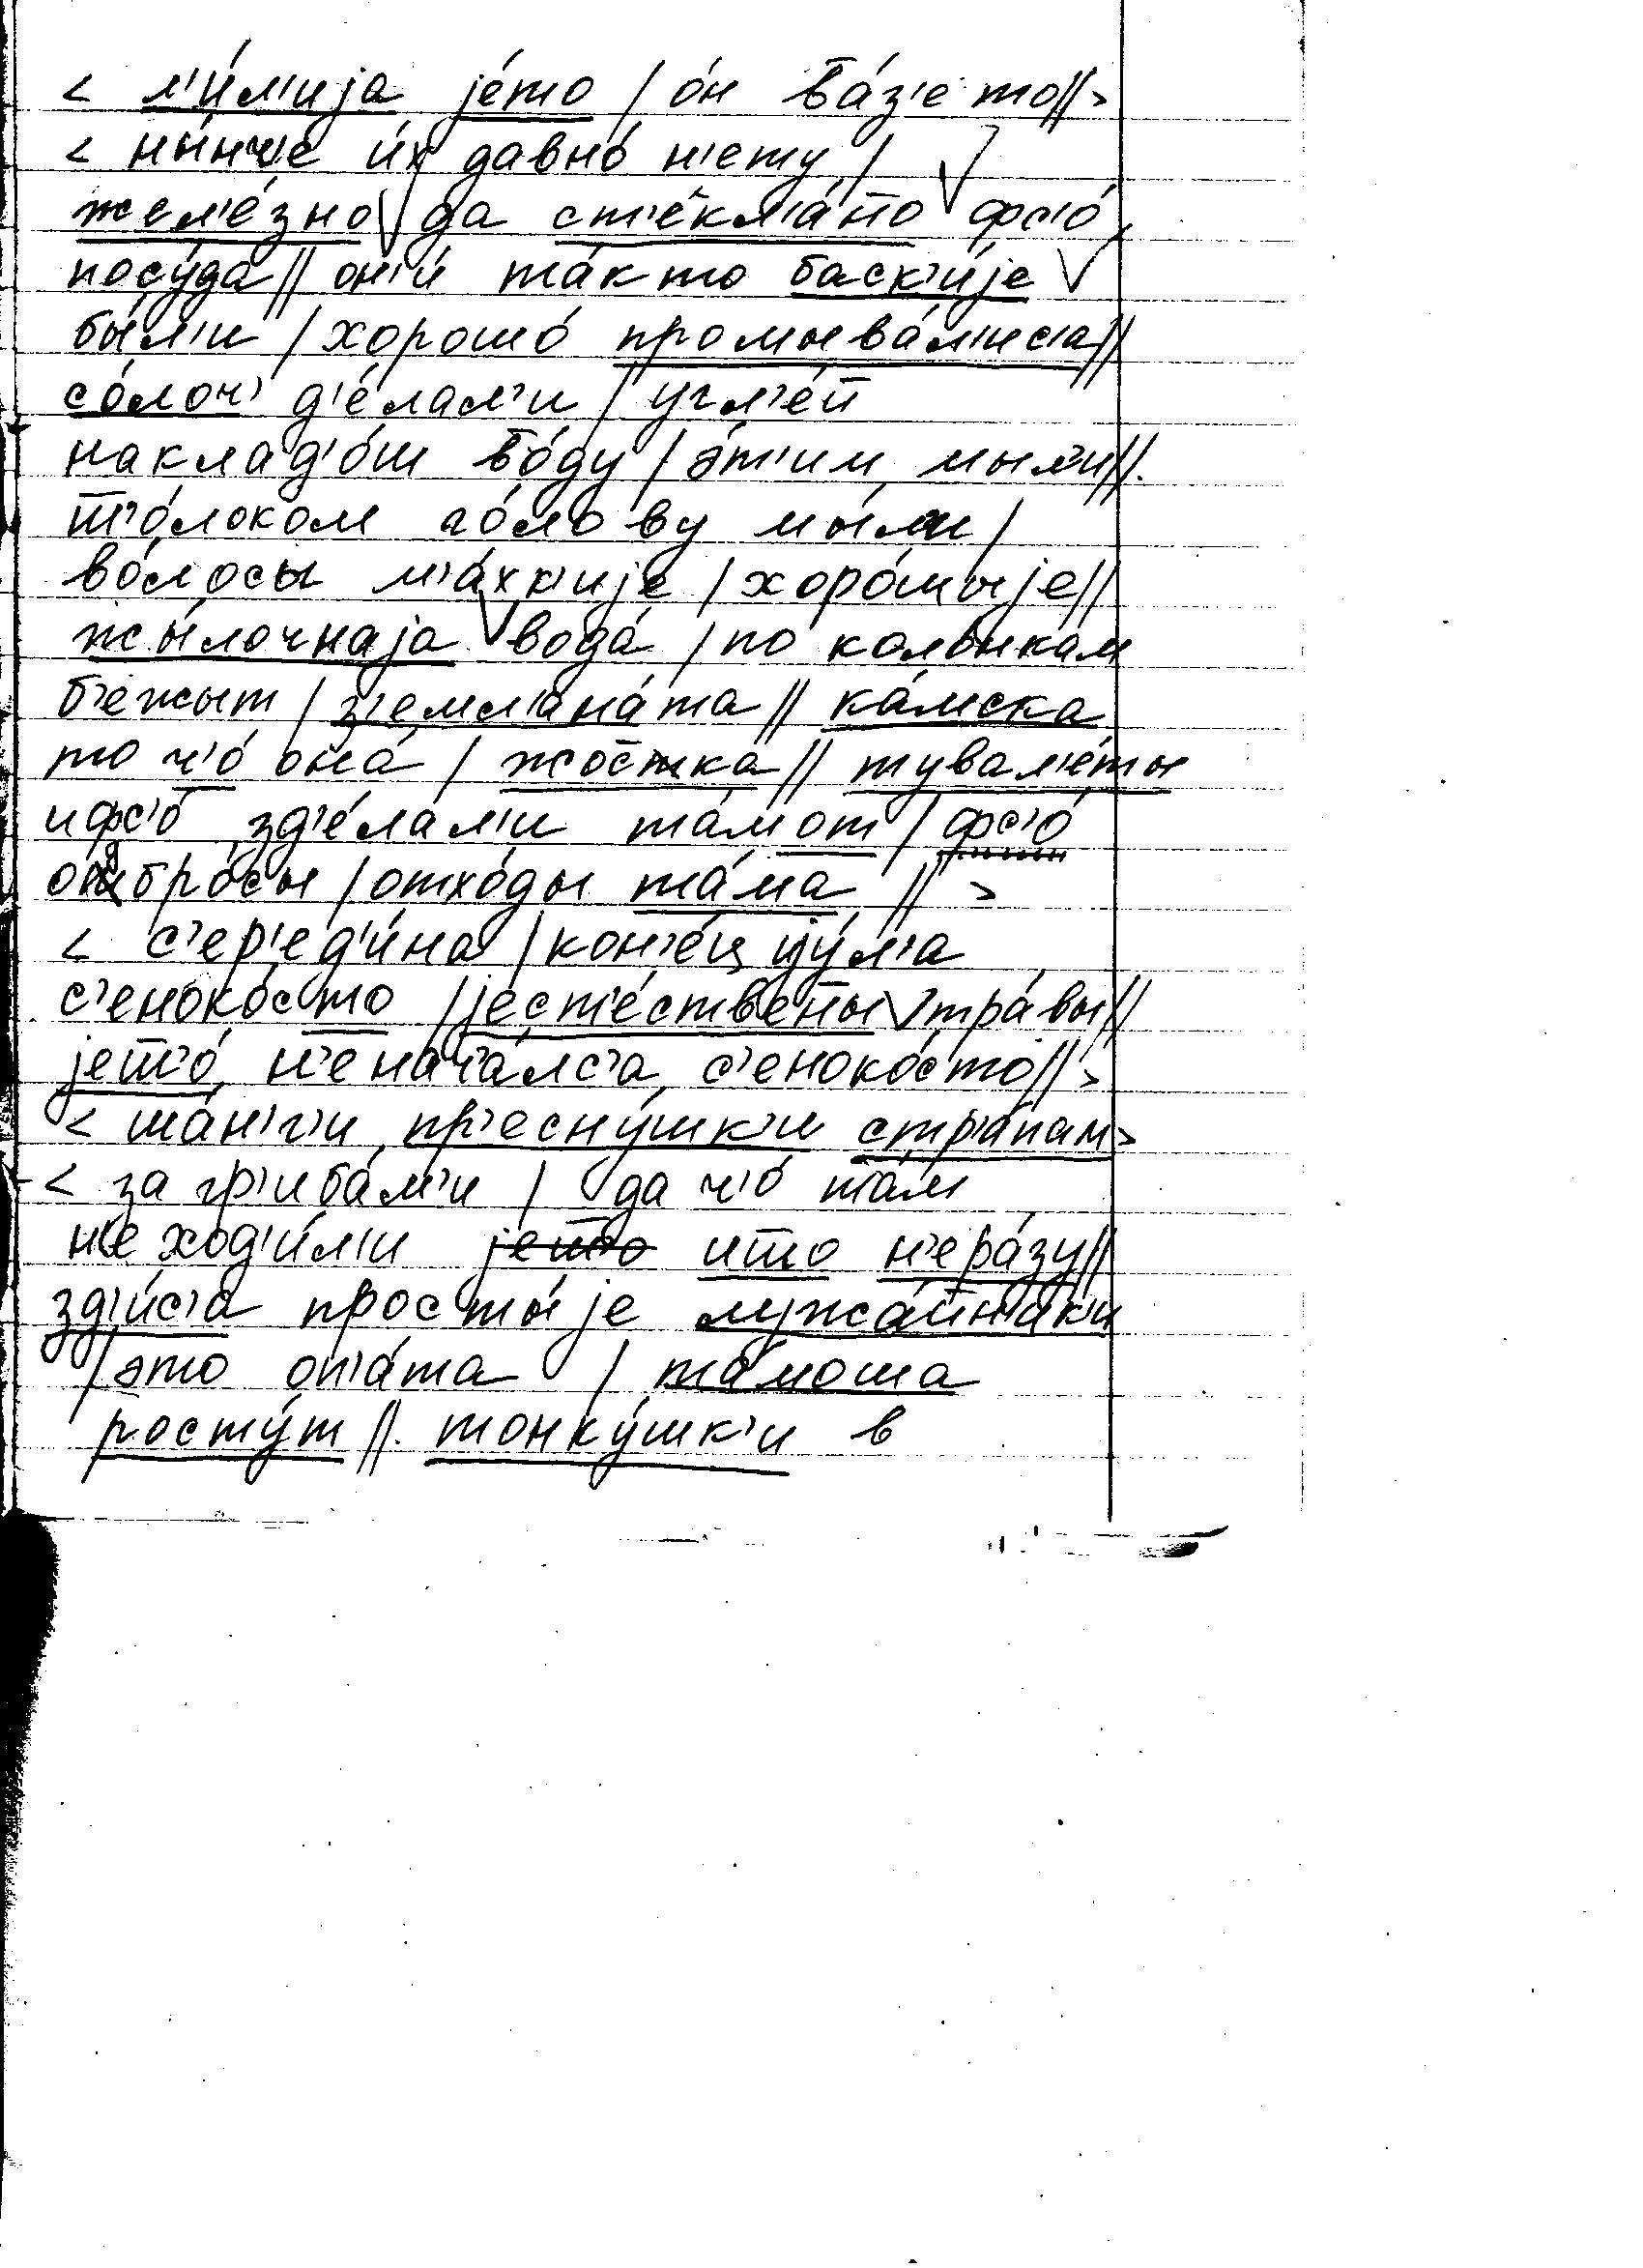 < л'и́л'ија је́то / о́н ва́з'е то // >
< ны́нче и́х давно́ н'ету /
жел'е́зно да ст'екл'а́но фс'о́
посу́да // он'и́ та́к то баск'и́је
бы́л'и / хорошо́ промыва́л'ис'а //
со́лоч' д'е́лал'и / угл'е́й
наклад'о́ш во́ду / э́т'им мыл'и //.
т'о́локом го́лову мы́ли /
во́лосы м'а́хк'ије / хоро́шыје //
жы́лочнаја вода́ / по колонкам
б'ежыт / з'емл'ана́та // ка́мска
то ч'о́ она́ / жостка // тувал'е́ты
и фс'о́ зд'е́лал'и та́м от / фс'о́
отбро́сы / отхо́ды та́ма // >
< с'ер'ед'и́на / кон'е́ц иј́ул'а
с'еноко́с то / јест'е́ствены тра́вы //
јет'о́ н'е нача́лс'а с'еноко́с то // >
< ша́н'г'и пр'есну́шк'и стр'а́пам >
< за гр'иба́м'и / да ч'о́ та́м
н'е ход'и́л'и <s>јето</s> ито н'ера́зу //
зд'и́с'а просты́је лужа́йн'ак'и
/ это оп'а́та / та́моша
росту́т //. тонку́шк'и в